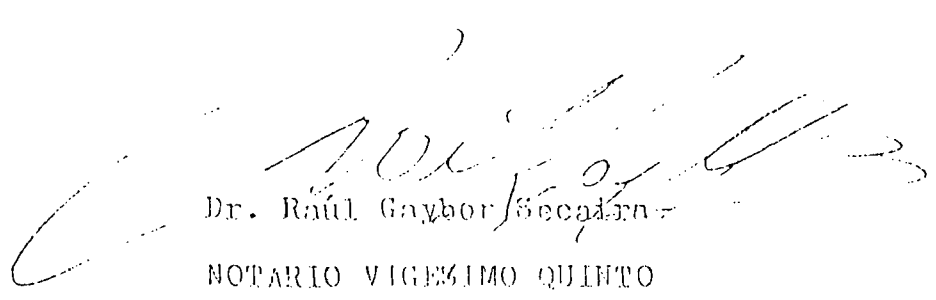 Dr. Raúl Gaybor Secaira
NOTARIO VIGESIMO QUINTO